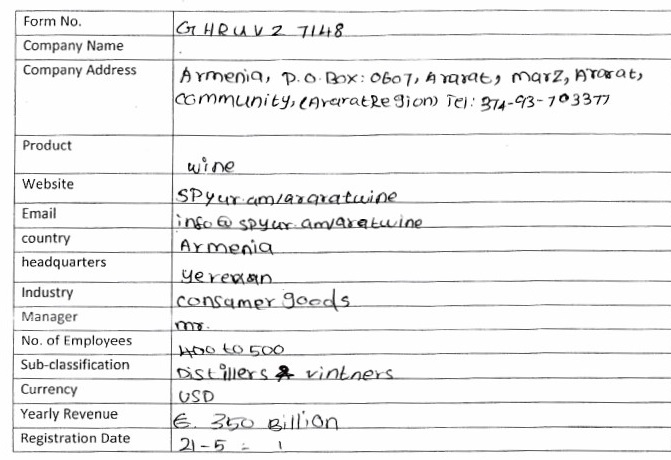 Form No. GHRUVZ 7148
Company Name
Company Address Armenia, P.O.Box: 0607, Ararat, marz, Ararat,
community, (Ararat Region) Tel: 374-93-703377
Product wine
Website SPyur.am/araratwine
Email info@spyur.am/aratwine
country Armenia
headquarters yerevan
Industry consumer goods
Manager mr.
No. of Employees 400 to 500
Sub-classification Distillers & vintners
Currency USD
Yearly Revenue €. 350 Billion
Registration Date 21-5